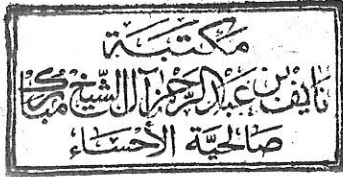 مكتبة
نايف بن عبد الرحمن آل الشيخ مبارك
صالحية الأحساء